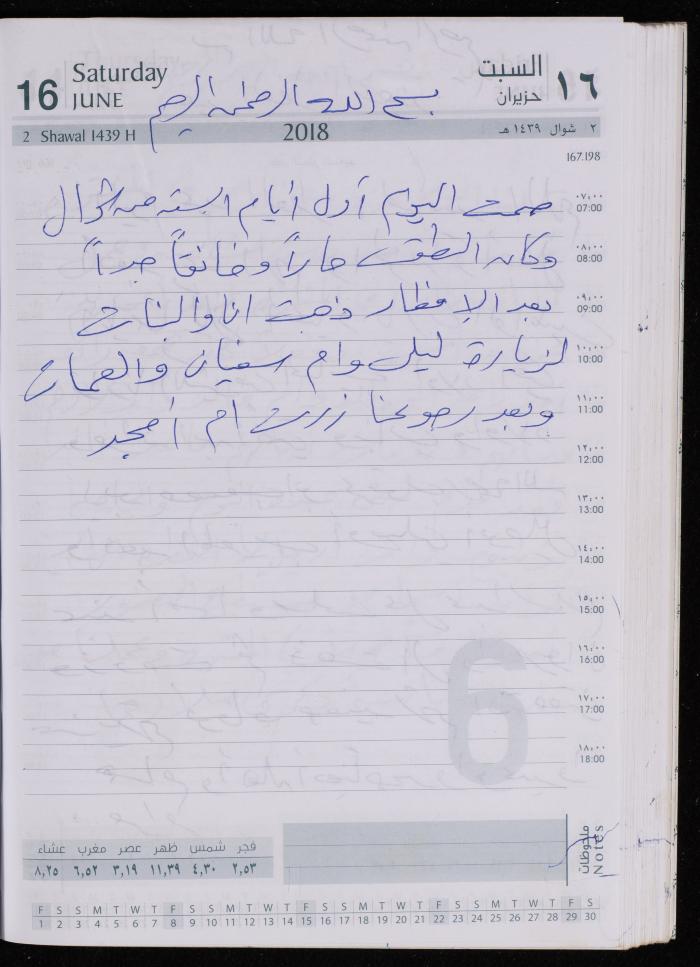 16 Saturday JUNE
السبت حزيران ١٦
بسم الله الرحمن الرحيم
2 Shawal 1439 H 2018 ٢ شوال ١٤٣٩ هـ
167.198
صمت اليوم أول أيام الستة من شوال
وكان الطقس حاراً وخانقاً جداً
بعد الإفطار ذهبت انا والبنات
لزيارة ليلى وام سفيان والعمات
وبعد رجوعنا زرت ام أمجد
٠٧:٠٠ 07:00
٠٨:٠٠ 08:00
٠٩:٠٠ 09:00
١٠:٠٠ 10:00
١١:٠٠ 11:00
١٢:٠٠ 12:00
١٣:٠٠ 13:00
١٤:٠٠ 14:00
١٥:٠٠ 15:00
١٦:٠٠ 16:00
١٧:٠٠ 17:00
١٨:٠٠ 18:00
6
ملاحظات Notes
فجر شمس ظهر عصر مغرب عشاء
٢,٥٣ ٤,٣٠ ١١,٣٩ ٣,١٩ ٦,٥٢ ٨,٢٥
F S S M T W T F S S M T W T F S S M T W T F S S M T W T F S
1 2 3 4 5 6 7 8 9 10 11 12 13 14 15 16 17 18 19 20 21 22 23 24 25 26 27 28 29 30